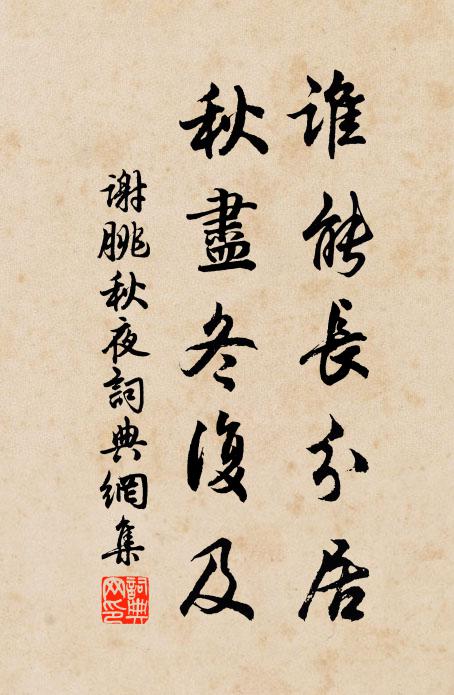 誰能長分居
秋盡冬復及
謝朓秋夜詞典網集
詞典
网印